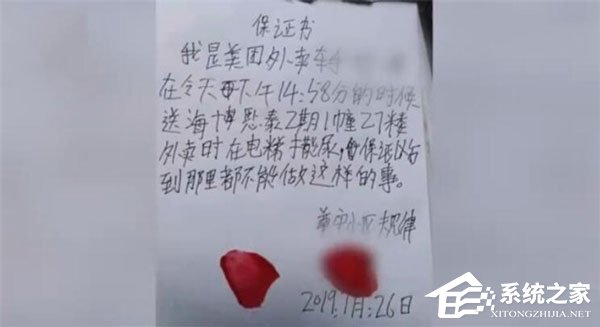 保证书
我是美团外卖
在今天下午14:58分的时候
送海博熙泰2期1幢27楼
外卖时在电梯撒尿,保证以后
到那里都不能做这样的事。
小区规律
2019.1月:26日
系统之家
XITONGZHIJIA.NET